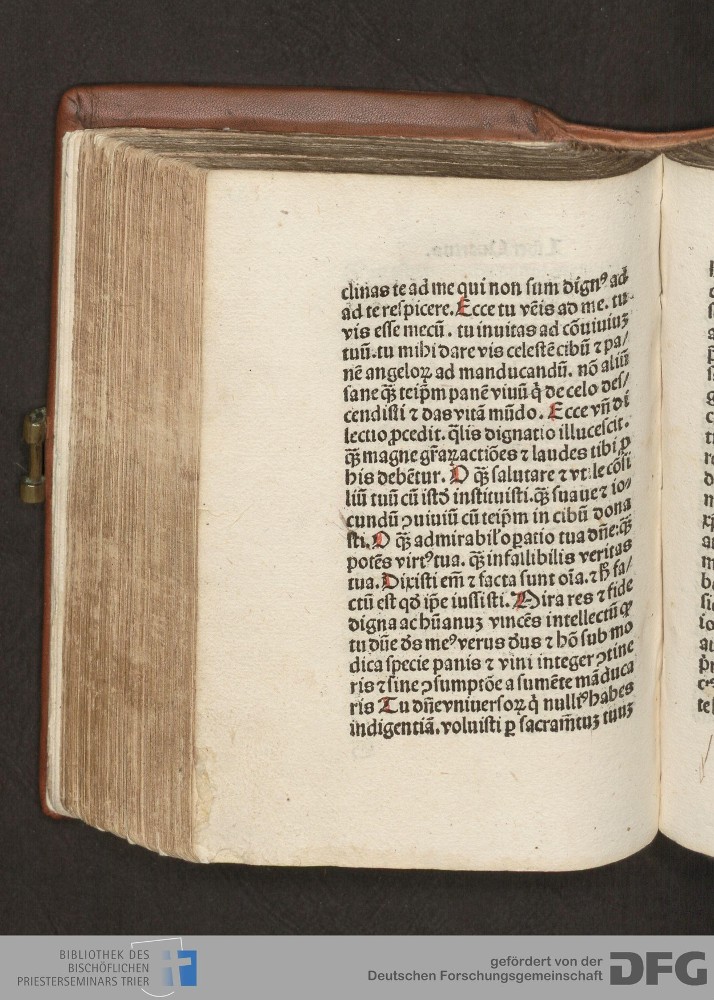 clinas te ad me qui non sum dignꝰ ad
ad te respicere. Ecce tu vēis ad me. tu
vis esse mecū. tu inuitas ad cōuiuiuꝫ
tuū. tu mihi dare vis celestē cibū ⁊ pa/
nē angeloꝝ ad manducandū. nō aliū
sane qꝫ̄ teip̄m panē viuū q̇ de celo des/
cendisti ⁊ das vitā mūdo. Ecce vn̄ di
lectio ꝓcedit. q̄lis dignatio illucescit.
qꝫ̄ magne gr̄aꝝ actiōes ⁊ laudes tibi ꝓ
his debētur. O qꝫ̄ salutare ⁊ vtile cōsi
liū tuū cū istd̄ instituisti. qꝫ̄ suaue ⁊ io/
cundū ꝯuiuiū cū teip̄m in cibū dona
sti. O qꝫ̄ admirabil' oꝑatio tua dn̄e: qꝫ̄
potēs virtꝰ tua. qꝫ̄ infallibilis veritas
tua. Dixisti em̄ ⁊ facta sunt oīa. ⁊ h̄ fa/
ctū est qd̄ ip̄e iussisti. Mira res ⁊ fide
digna ac hūanuꝫ vincēs intellectū qꝫ
tu dn̄e ds̄ meꝰ verus dūs ⁊ hō sub mo
dica specie panis ⁊ vini integer ꝯtine
ris ⁊ sine ꝯsumptōe a sumēte māduca
ris Tu dn̄e vniuersoꝝ q̇ nulliꝰ habes
indigentiā. voluisti ꝑ sacram̄tuꝫ tuuꝫ
BIBLIOTHEK DES
BISCHÖFLICHEN
PRIESTERSEMINARS TRIER
gefördert von der
Deutschen Forschungsgemeinschaft
DFG